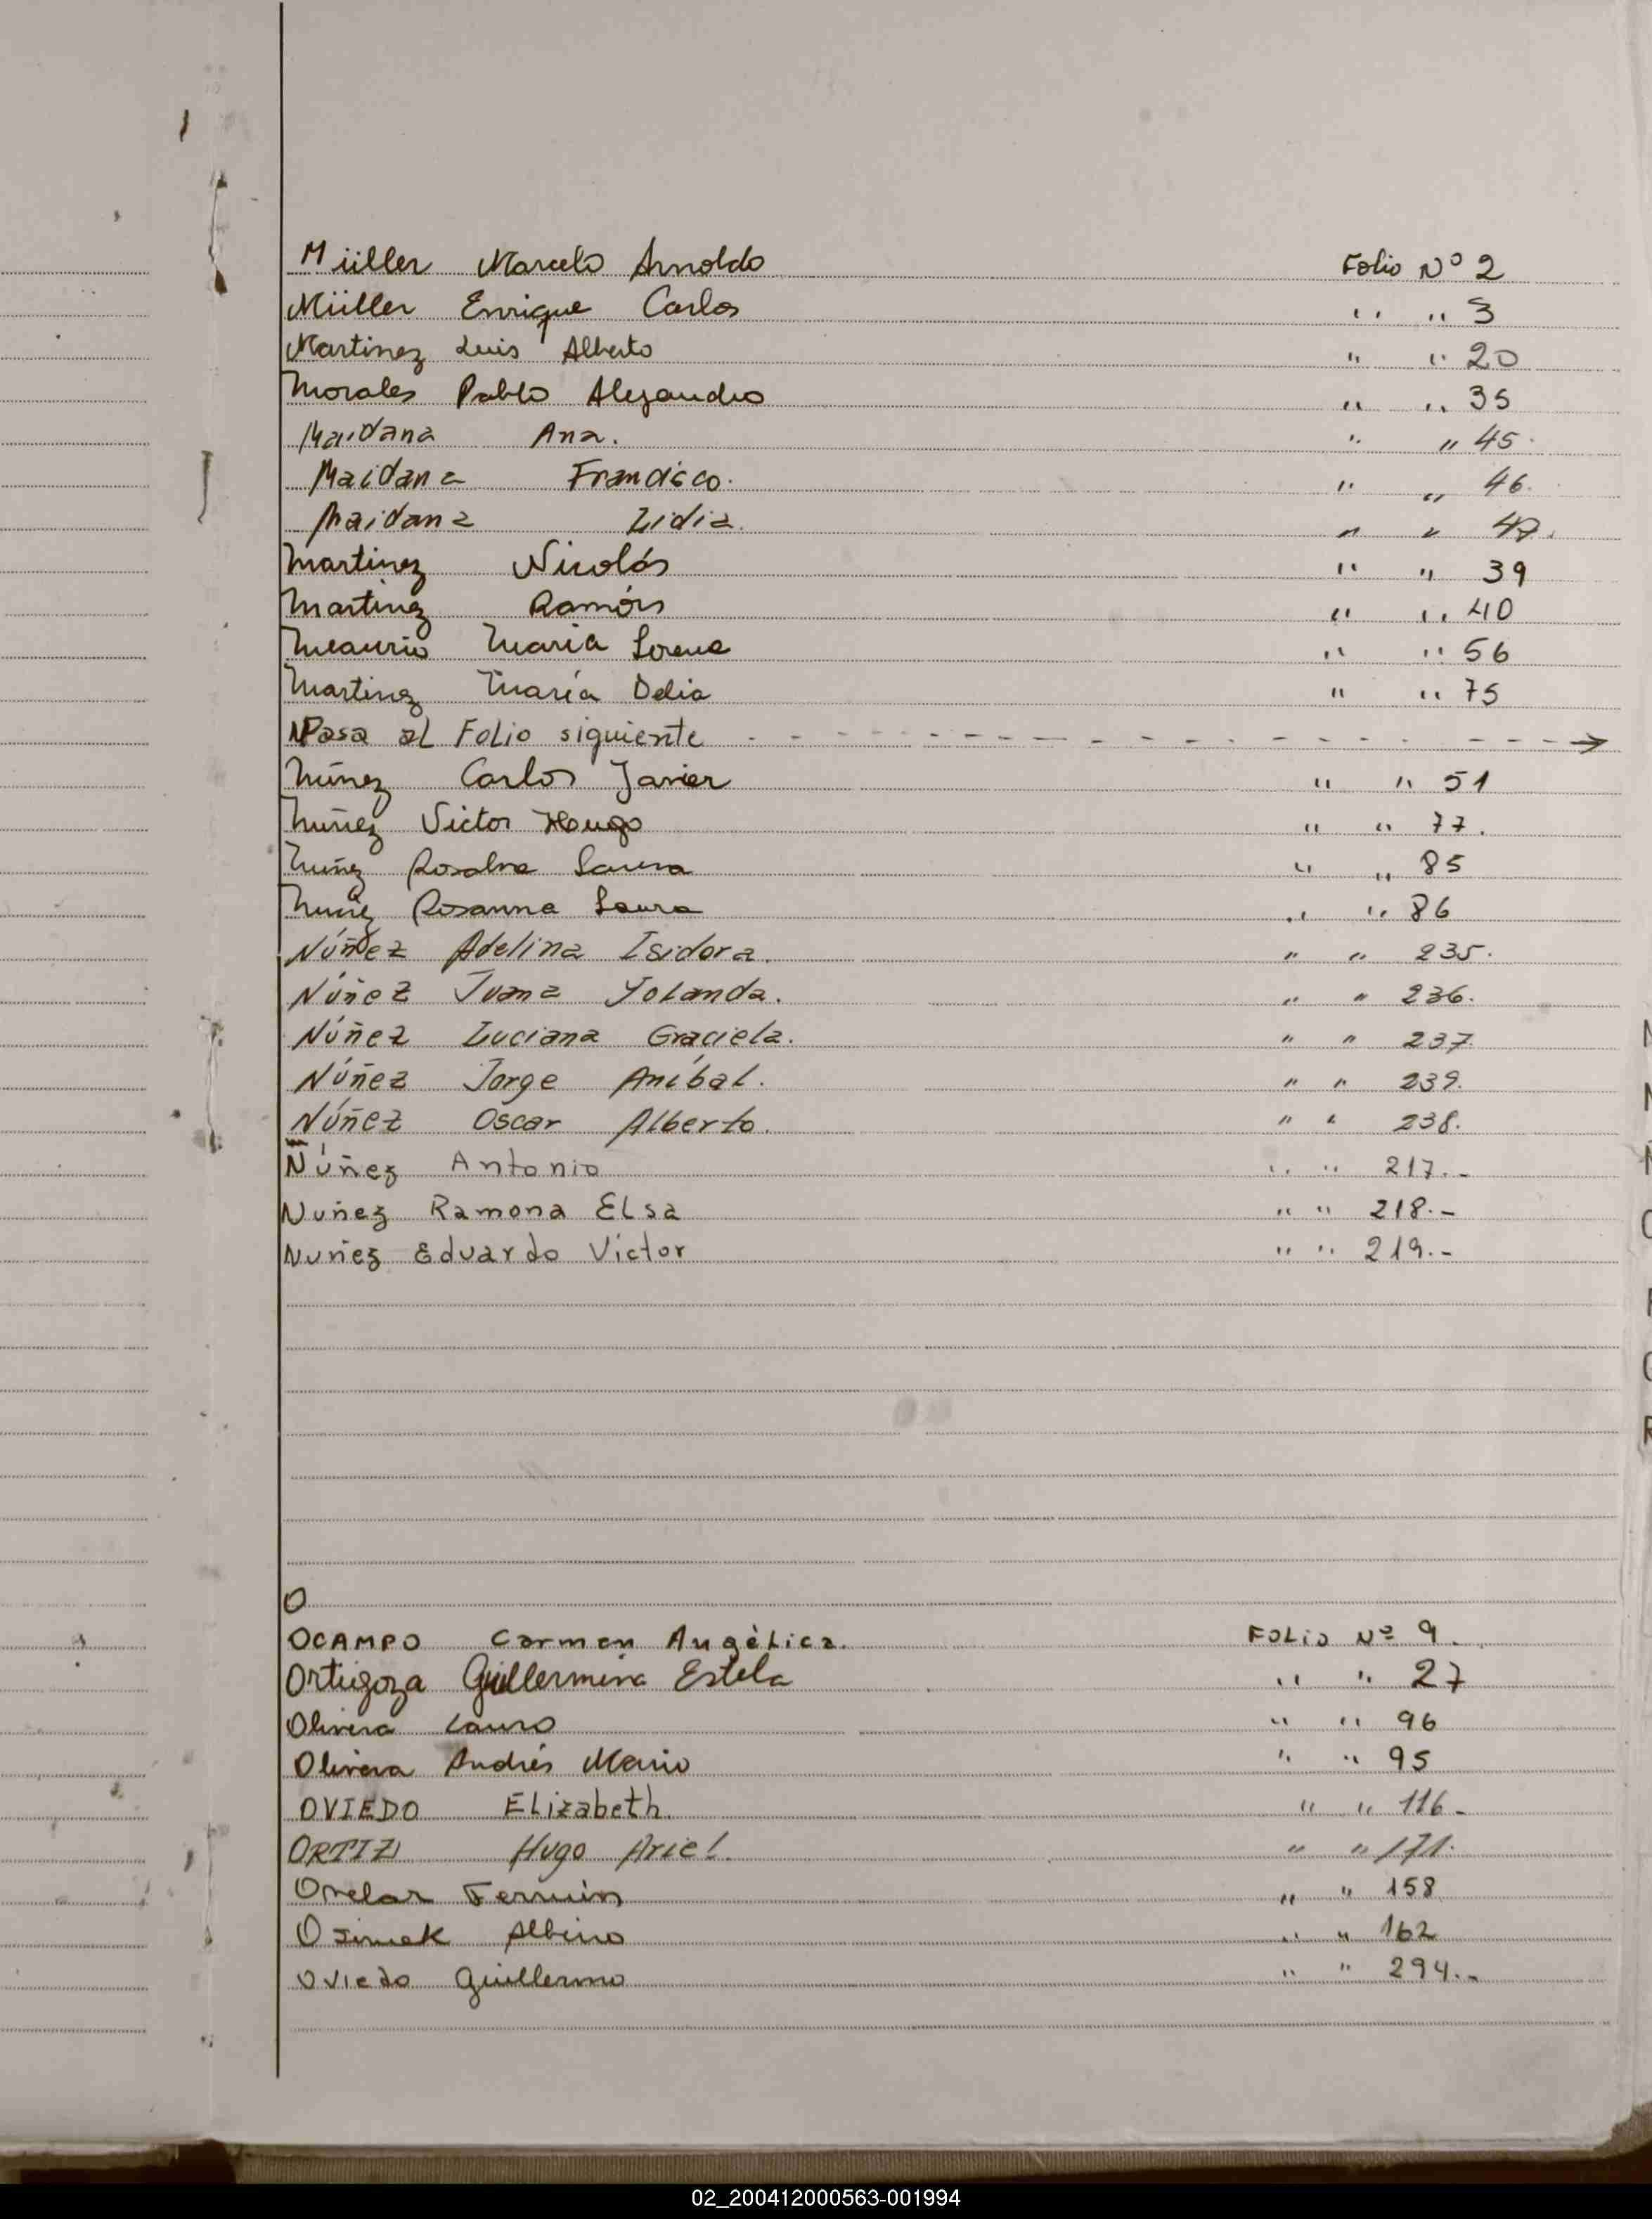 Müller Marcelo Arnoldo Folio Nº 2
Müller Enrique Carlos " " 3
Martinez Luis Alberto " " 20
Morales Pablo Alejandro " " 35
Maidana Ana. " " 45.
Maidana Francisco. " " 46.
Maidana Lidia. " " 47.
Martinez Nicolás " " 39
Martinez Ramón " " 40
Meaurio Maria Lorena " " 56
Martinez María Delia " " 75
Pasa al Folio siguiente - - - - - - - - - - - - - →
Núñez Carlos Javier " " 51
Nuñez Victor Hugo " " 77.
Nuñez Laura " " 85
Nuñez Rosanna Laura " " 86
Núñez Adelina Isidora. " " 235.
Núñez Juana Yolanda. " " 236.
Núñez Luciana Graciela. " " 237.
Núñez Jorge Aníbal. " " 239.
Núñez Oscar Alberto. " " 238.
Núñez Antonio " " 217.-
Nuñez Ramona Elsa " " 218.-
Nuñez Eduardo Victor " " 219.-
O
OCAMPO Carmen Angélica. FOLIO Nº 9.
Ortigoza Guillermina Estela " " 27
Olivera Lauro " " 96
Olivera Andrés Mario " " 95
OVIEDO Elizabeth. " " 116-
ORTIZ Hugo Ariel. " " 171.
Orelar Fermín " " 158
Osimek Albino " " 162
Oviedo Guillermo " " 294.-
02_200412000563-001994